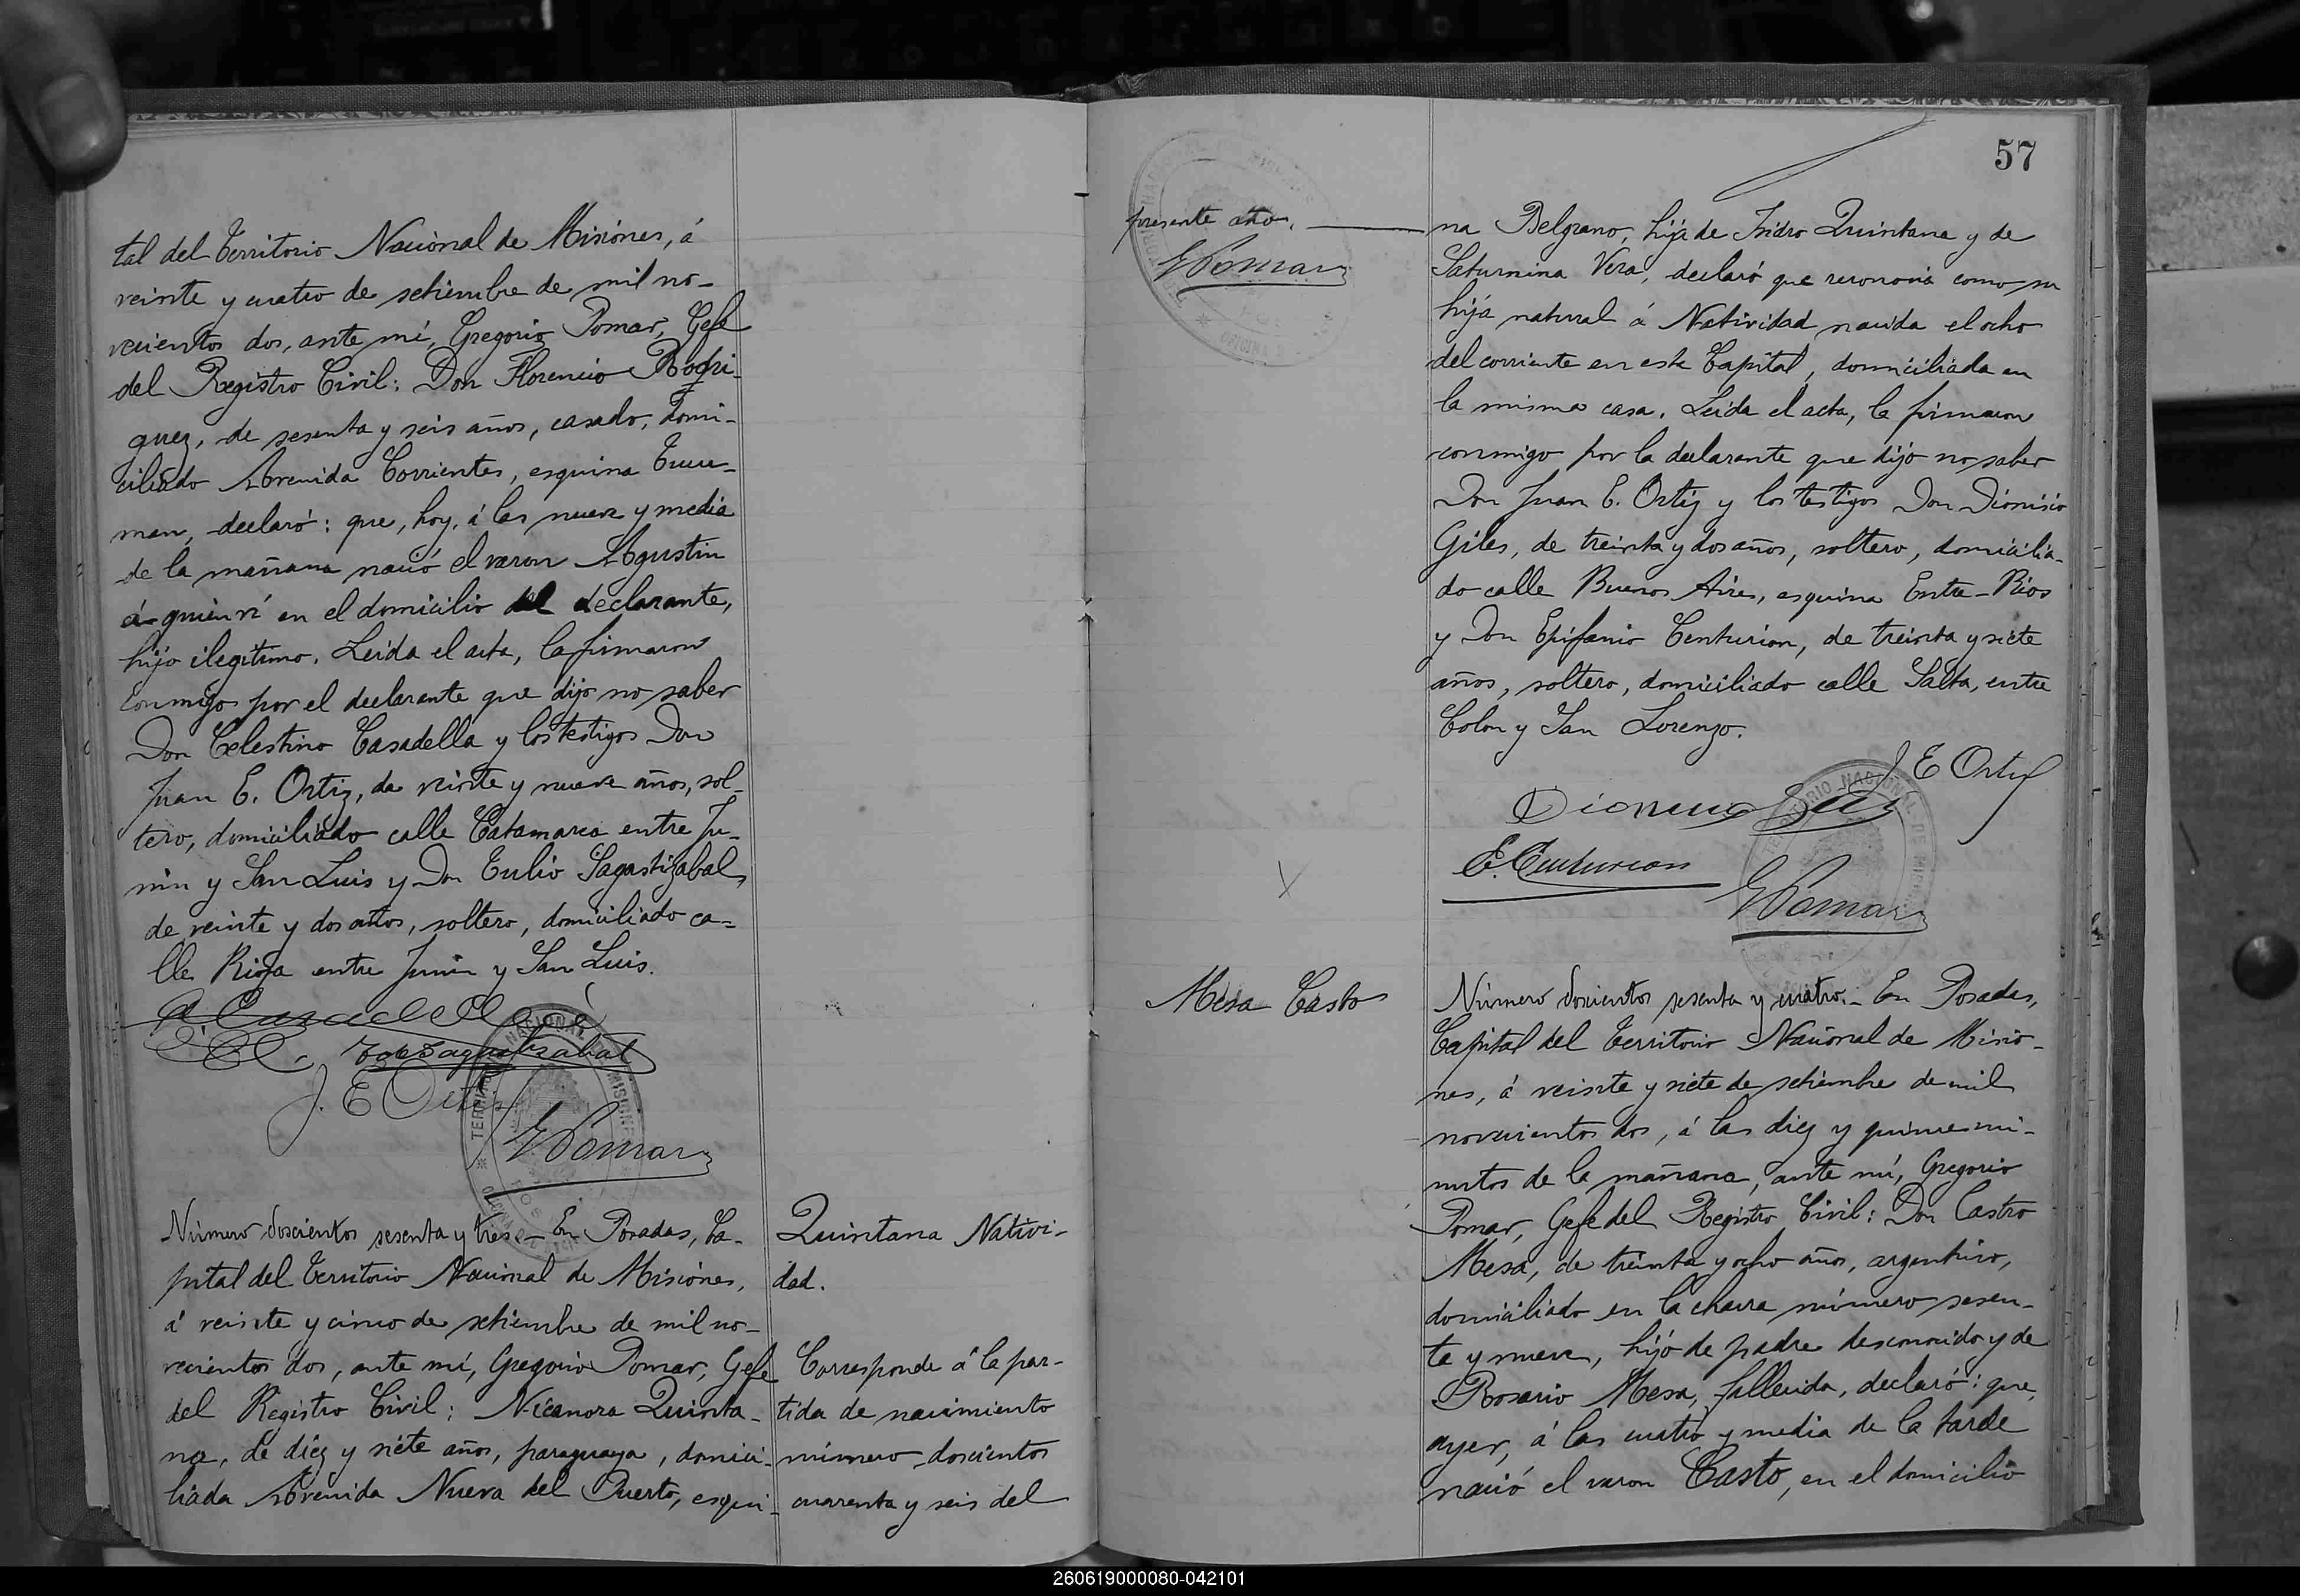 tal del Territorio Nacional de Misiones, á
veinte y cuatro de setiembre de mil no-
vecientos dos, ante mí, Gregorio Pomar, Gefe
del Registro Civil: Don Florencio Rodri-
guez, de sesenta y seis años, casado, domi-
ciliado Avenida Corrientes, esquina Tucu-
man, declaró: que, hoy, á las nueve y media
de la mañana nació el varon Agustin
á quien ví en el domicilio del declarante,
hijo ilegítimo. Leida el acta, la firmaron
conmigo por el declarante que dijo no saber
Don Celestino Casadella y los testigos Don
Juan E. Ortiz, de veinte y nueve años, sol-
tero, domiciliado calle Catamarca entre Ju-
nin y San Luis y Don Tulio Sagastizabal,
de veinte y dos años, soltero, domiciliado ca-
lle Rioja entre Junin y San Luis.
J. E Ortiz
G Pomar
Número doscientos sesenta y tres.- En Posadas, Ca-
pital del Territorio Nacional de Misiones,
á veinte y cinco de setiembre de mil no-
vecientos dos, ante mí, Gregorio Pomar, Gefe
del Registro Civil: Nicanora Quinta-
na, de diez y siete años, paraguaya, domici-
liada Avenida Nueva del Puerto, esqui-
Quintana Nativi-
dad.
Corresponde á la par-
tida de nacimiento
número doscientos
cuarenta y seis del
57
presente año.
G Pomar
na Belgrano, hija de Isidro Quintana y de
Saturnina Vera, declaró que reconocia como su
hija natural á Natividad nacida el ocho
del corriente en esta Capital, domiciliada en
la misma casa. Leida el acta, la firmaron
conmigo por la declarante que dijo no saber
Don Juan E. Ortiz y los testigos Don Dionisio
Giles, de treinta y dos años, soltero, domicilia-
do calle Buenos Aires, esquina Entre-Rios
y Don Epifanio Centurion, de treinta y siete
años, soltero, domiciliado calle Salta, entre
Colon y San Lorenzo.
J E Ortiz
E. Centurion
G Pomar
Mesa Casto
Número doscientos sesenta y cuatro.- En Posadas,
Capital del Territorio Nacional de Misio-
nes, á veinte y siete de setiembre de mil
novecientos dos, á las diez y quince mi-
nutos de la mañana, ante mí, Gregorio
Pomar, Gefe del Registro Civil: Don Castro
Mesa, de treinta y ocho años, argentino,
domiciliado en la chacra número sesen-
ta y nueve, hijo de padre desconocido y de
Rosario Mesa, fallecida, declaró: que,
ayer, á las cuatro y media de la tarde
nació el varon Casto, en el domicilio
260619000080-042101